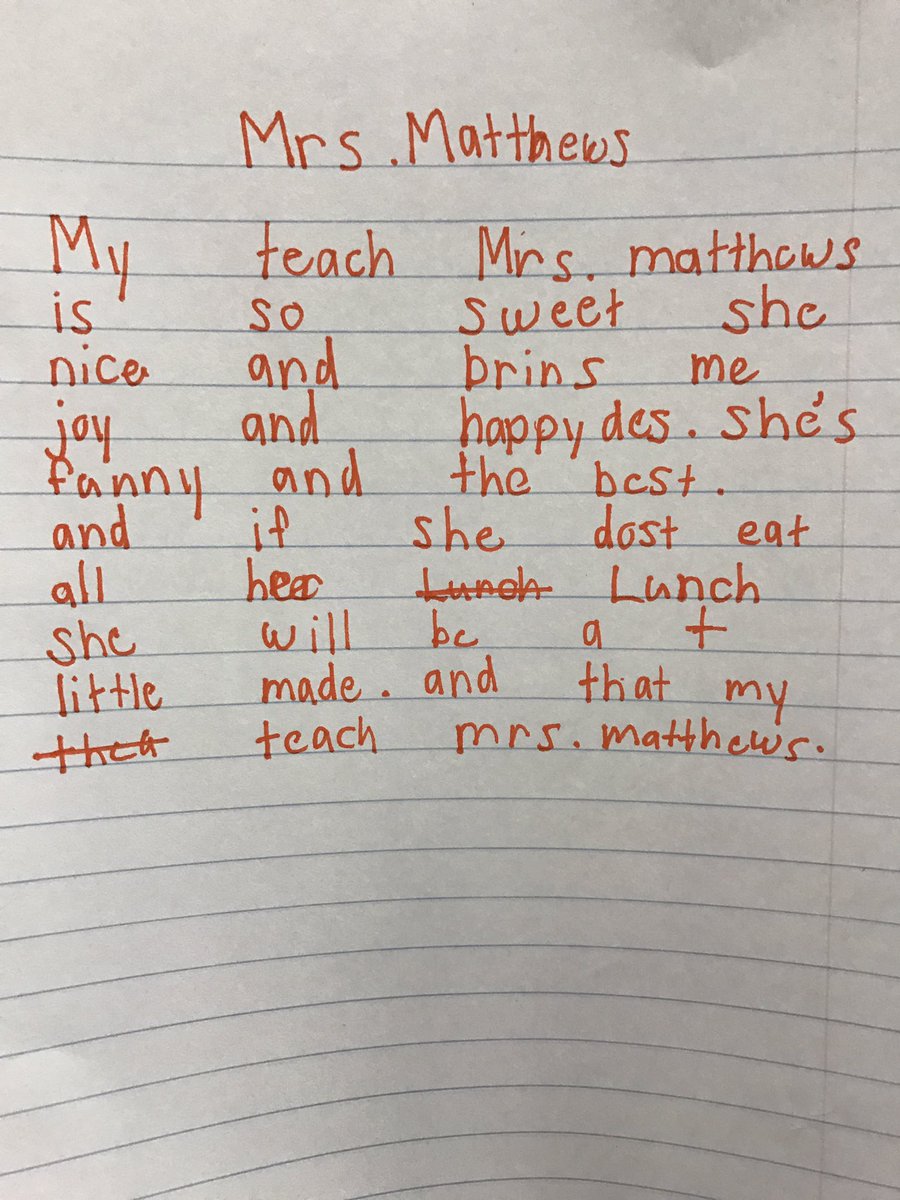 Mrs. Matthews
My teach Mrs. matthews
is so sweet she
nice and brins me
joy and happy des. she's
fanny and the best.
and if she dost eat
all her Lunch Lunch
she will be a t
little made. and that my
thea teach mrs. matthews.